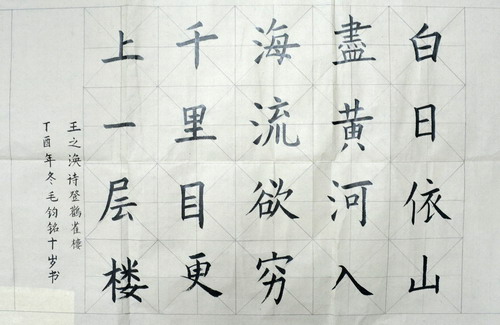 白日依山
盡黄河入
海流欲穷
千里目更
上一层楼
王之涣诗登鹳雀楼
丁酉年冬毛钧铭十岁书